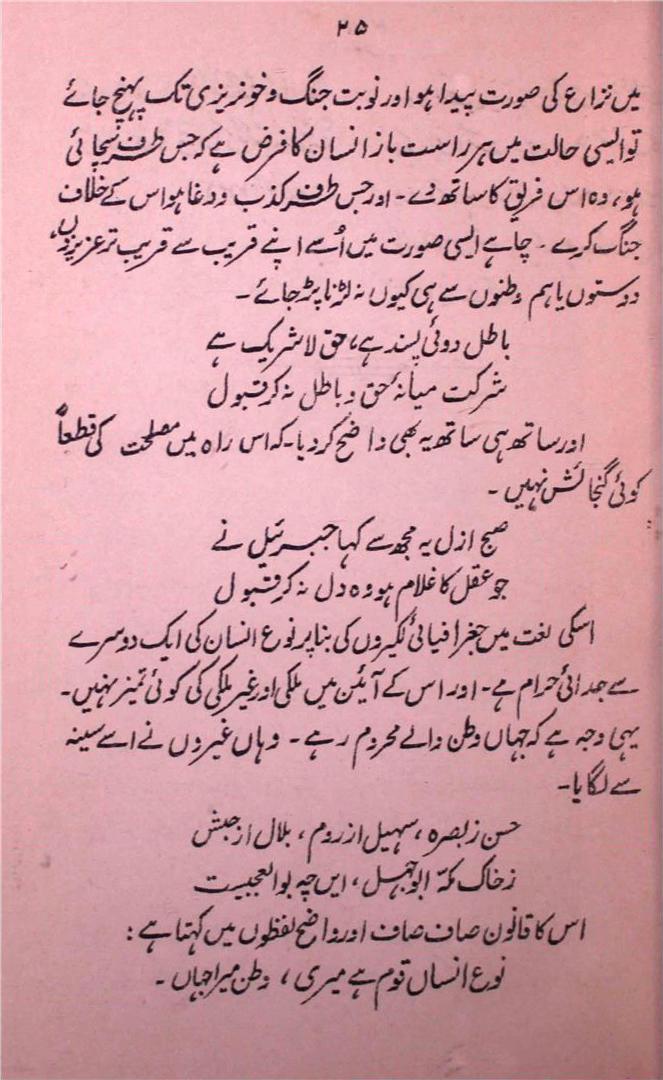 ۲۵
میں نزاع کی صورت پیدا ہو اور نوبت جنگ و خونریزی تک پہنچ جائے
تو ایسی حالت میں ہر راست باز انسان کا فرض ہے کہ جس طرف سچائی
ہو، وہ اس فریق کا ساتھ دے ۔ اور جس طرف کذب و دغا ہو اس کے خلاف
جنگ کرے ۔ چاہے ایسی صورت میں اُسے اپنے قریب سے قریب تر عزیزوں،
دوستوں یا ہم وطنوں سے ہی کیوں نہ لڑنا پڑ جائے ۔
باطل دوئی پسند ہے، حق لا شریک ہے
شرکت میانۂ حق و باطل نہ کر قبول
اور ساتھ ہی ساتھ یہ بھی واضح کر دیا۔ کہ اس راہ میں مصلحت کی قطعاً
کوئی گنجائش نہیں ۔
صبح ازل یہ مجھ سے کہا جبرئیل نے
جو عقل کا غلام ہو وہ دل نہ کر قبول
اسکی لغت میں جغرافیائی لکیروں کی بنا پر نوع انسان کی ایک دوسرے
سے جدائی حرام ہے ۔ اور اس کے آئین میں ملکی اور غیر ملکی کی کوئی تمیز نہیں۔
یہی وجہ ہے کہ جہاں وطن والے محروم رہے ۔ وہاں غیروں نے اسے سینہ
سے لگایا۔
حسن ز بصرہ ، سہیل از روم ، بلال از حبش
ز خاک مکّہ ابوجہل ، ایں چہ بوالعجبیست
اس کا قانون صاف صاف اور واضح لفظوں میں کہتا ہے :
نوع انساں قوم ہے میری ، وطن میرا جہاں ۔